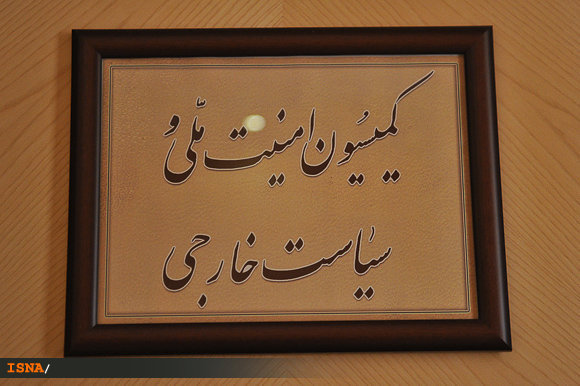 کمیسیون امنیت ملّی و
سیاست خارجی
ISNA/